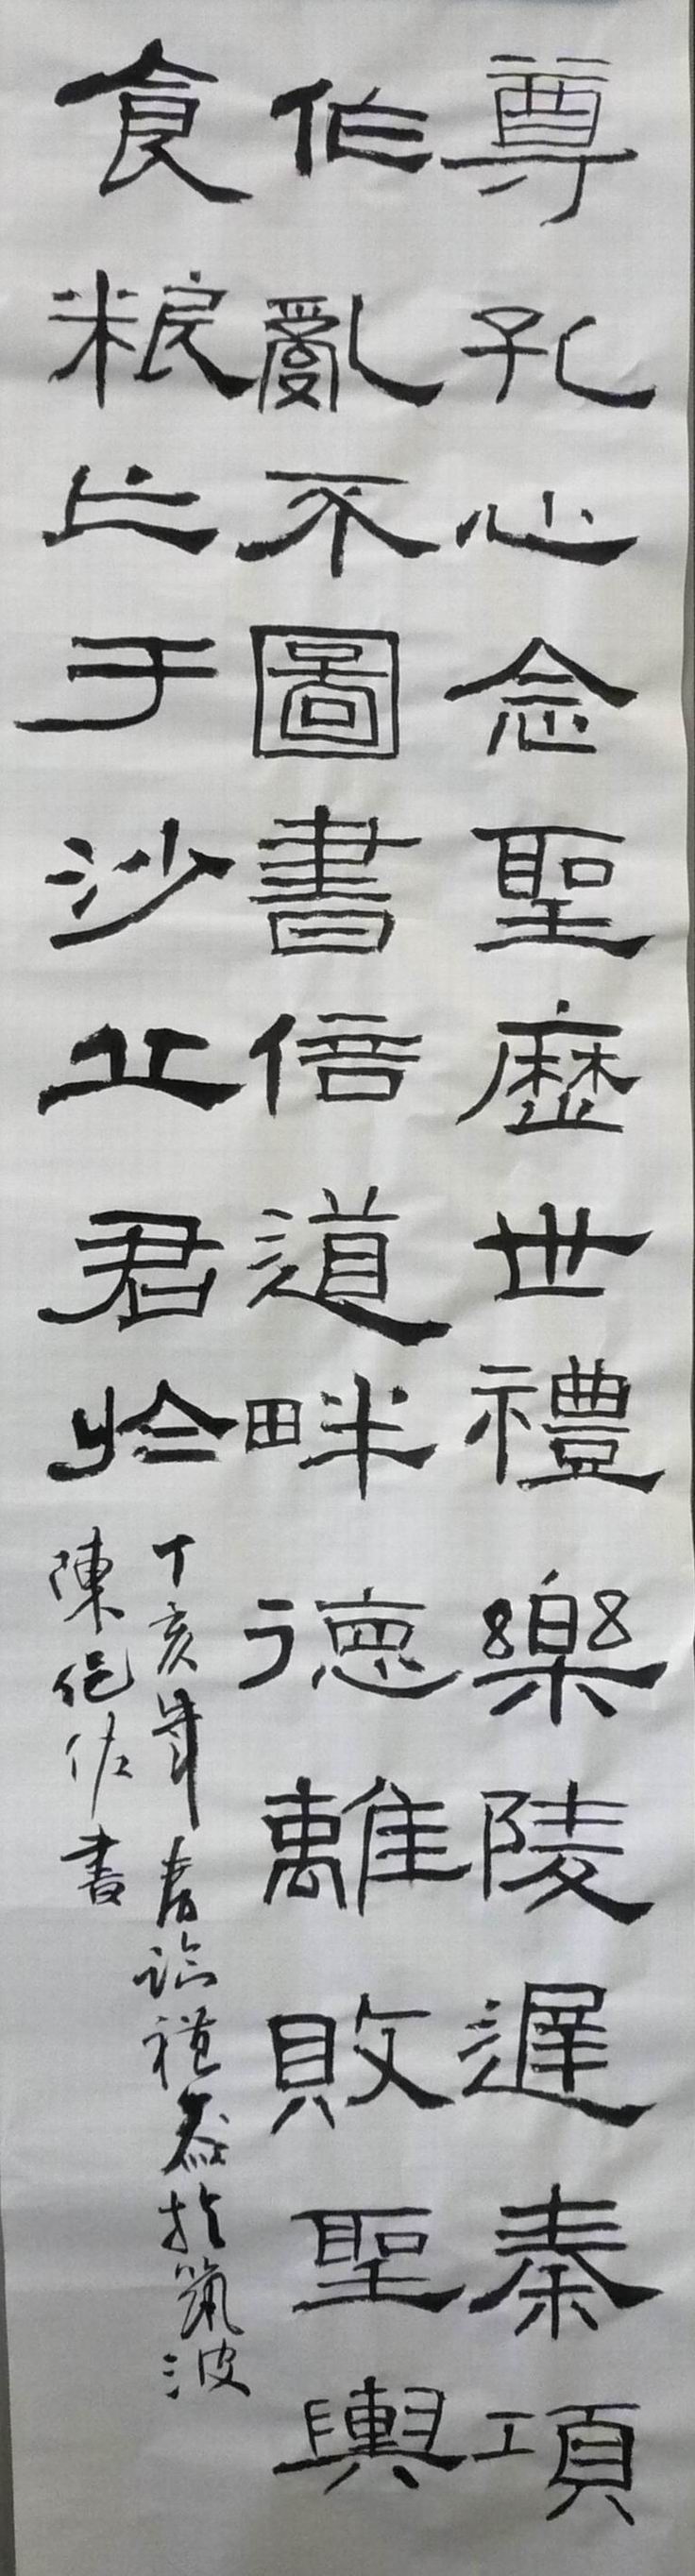 尊孔心念聖歷世禮樂陵遲秦項
作亂不圖書倍道畔德離敗聖輿
食粮亡于沙丘君於
丁亥年春临禮器於筑波
陳佐書